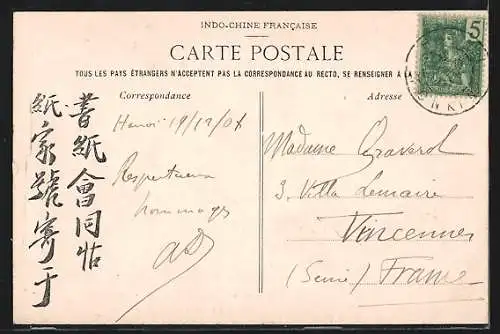 INDO-CHINE FRANÇAISE
CARTE POSTALE
TOUS LES PAYS ÉTRANGERS N'ACCEPTENT PAS LA CORRESPONDANCE AU RECTO, SE RENSEIGNER A LA
5
Correspondance
Adresse
Hanoi 19/12/04
Respectueux
hommages
Madame Gravard
3, Villa Lemaire
Vincennes
(Seine) France
書紙會同帖
紙家號寄于